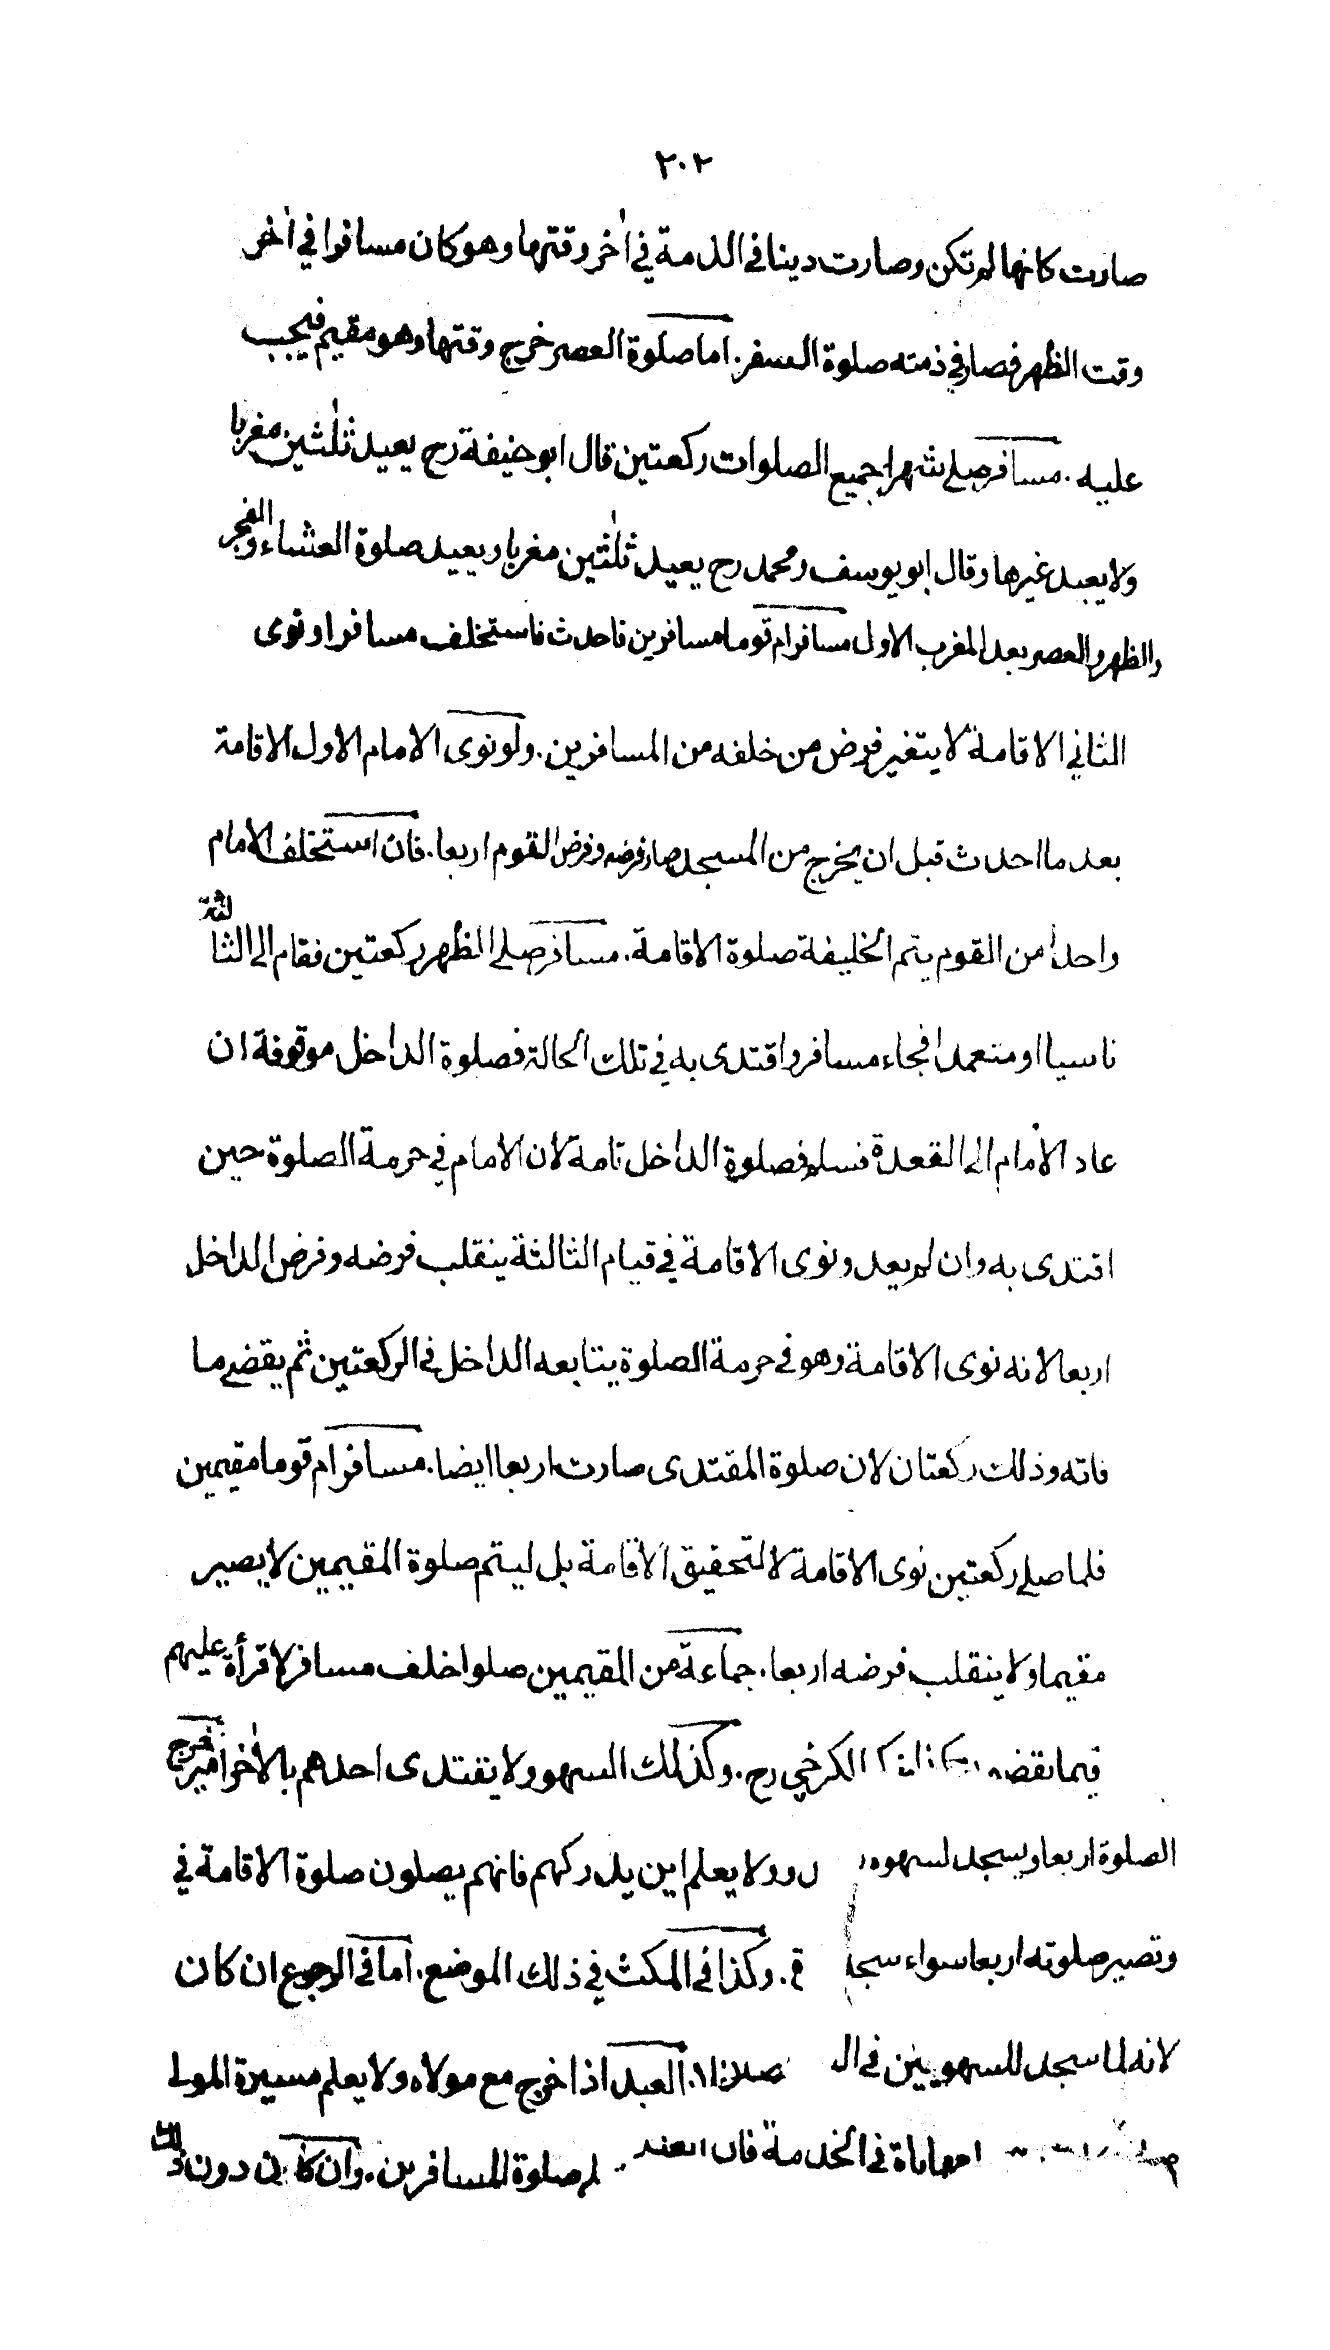 ٢٠٢
صارت كانها لم تكن وصارت دينا في الذمة في اٰخر وقتها وهو كان مسافرا في اٰخر
وقت الظهر فصار في ذمته صلوة السفر. اما صلوة العصر خرج وقتها وهو مقيم فيجب
عليه. مسافر صلى شهرا جميع الصلوات ركعتين قال ابو حنيفة رح يعيد ثلٰثين مغربا
ولا يعيد غيرها وقال ابو يوسف ومحمد رح يعيد ثلٰثين مغربا ويعيد صلوة العشاء والفجر
والظهر والعصر بعد المغرب الاول مسافر ام قوما مسافرين فاحدث فاستخلف مسافرا ونوى
الثاني الاقامة لا يتغير فرض من خلفه من المسافرين. ولو نوى الامام الاول الاقامة
بعد ما احدث قبل ان يخرج من المسجد صار فرضه وفرض القوم اربعا. فان استخلف الامام
واحدا من القوم يتم الخليفة صلوة الاقامة. مسافر صلى الظهر ركعتين فقام الى الثالثة
ناسيا او متعمدا فجاء مسافر واقتدى به في تلك الحالة فصلوة الداخل موقوفة ان
عاد الامام الى القعدة فسلم فصلوة الداخل تامة لان الامام في حرمة الصلوة حين
اقتدى به وان لم يعد ونوى الاقامة في قيام الثالثة ينقلب فرضه وفرض الداخل
اربعا لانه نوى الاقامة وهو في حرمة الصلوة يتابعه الداخل في الركعتين ثم يقضي ما
فاته وذلك ركعتان لان صلوة المقتدى صارت اربعا ايضا. مسافر ام قوما مقيمين
فلما صلى ركعتين نوى الاقامة لا لتحقيق الاقامة بل ليتم صلوة المقيمين لا يصير
مقيما ولا ينقلب فرضه اربعا. جماعة من المقيمين صلوا خلف مسافر لا قرأة عليهم
فيما يقضون الكرخي رح. وكذلك السهو ولا يقتدى احدهم بالاٰخر امير خرج
الصلوة اربعا ويسجد لسهوه ولا يعلم اين يدركهم فانهم يصلون صلوة الاقامة في
وتصير صلوته اربعا سواء سجد وكذا في المكث في ذلك الموضع. اما في الرجوع ان كان
لانه لما سجد للسهو في ال العبد اذا خرج مع مولاه ولا يعلم مسيرة المولى
في الخدمة فان صلوة المسافرين. وان كان دون ذلك